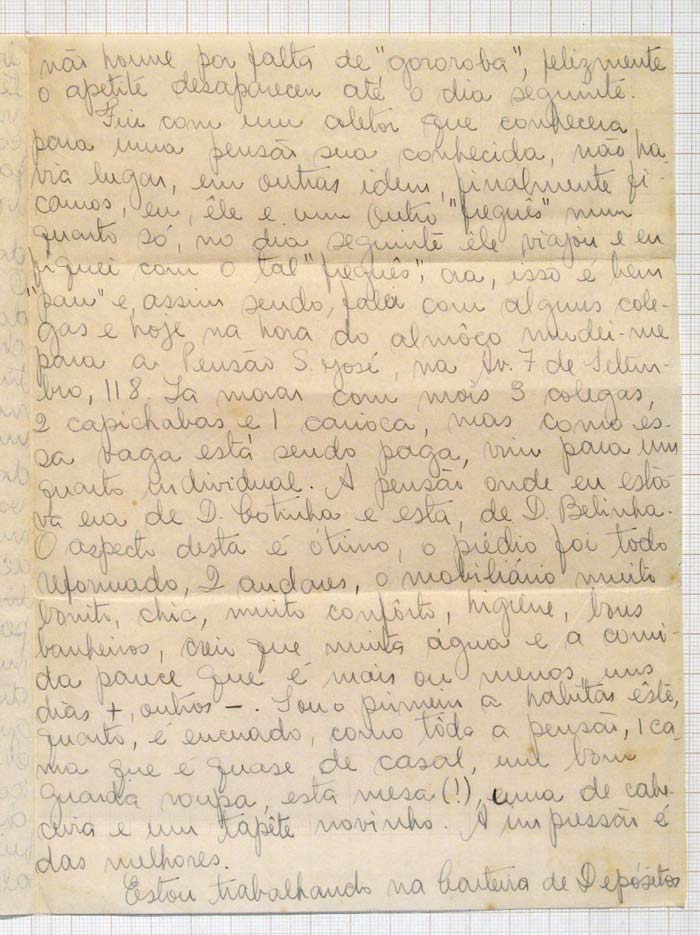 não houve por falta de "gororoba", felizmente
o apetite desapareceu até o dia seguinte.
Fui com um aletôr que conhecera
para uma pensão sua conhecida, não ha-
via lugar, em outras idem, finalmente fi-
camos, eu, êle e um outro "freguês" num
quarto só, no dia seguinte êle viajou e eu
fiquei com o tal "freguês", ora, isso é bem
"pau" e, assim sendo, falei com alguns cole-
gas e hoje na hora do almôço mudei-me
para a Pensão S. José, na Av. 7 de Setem-
bro, 118. Ia morar com mais 3 colegas,
2 capichabas e 1 carioca, mas como es-
sa vaga está sendo paga, vim para um
quarto individual. A pensão onde eu esta-
va era de D. Cotinha e esta, de D. Belinha.
O aspecto desta é ótimo, o prédio foi todo
reformado, 2 andares, o mobiliário muito
bonito, chic, muito confôrto, higiene, bons
banheiros, creio que muita água e a comi-
da parece que é mais ou menos, uns
dias +, outros -. Sou o primeiro a habitar êste
quarto, é encerado, como tôda a pensão, 1 ca-
ma que é quase de casal, um bom
guarda roupa, esta mesa (!), uma de cabe-
ceira e um tapête novinho. A impressão é
das melhores.
Estou trabalhando na Carteira de Depósitos